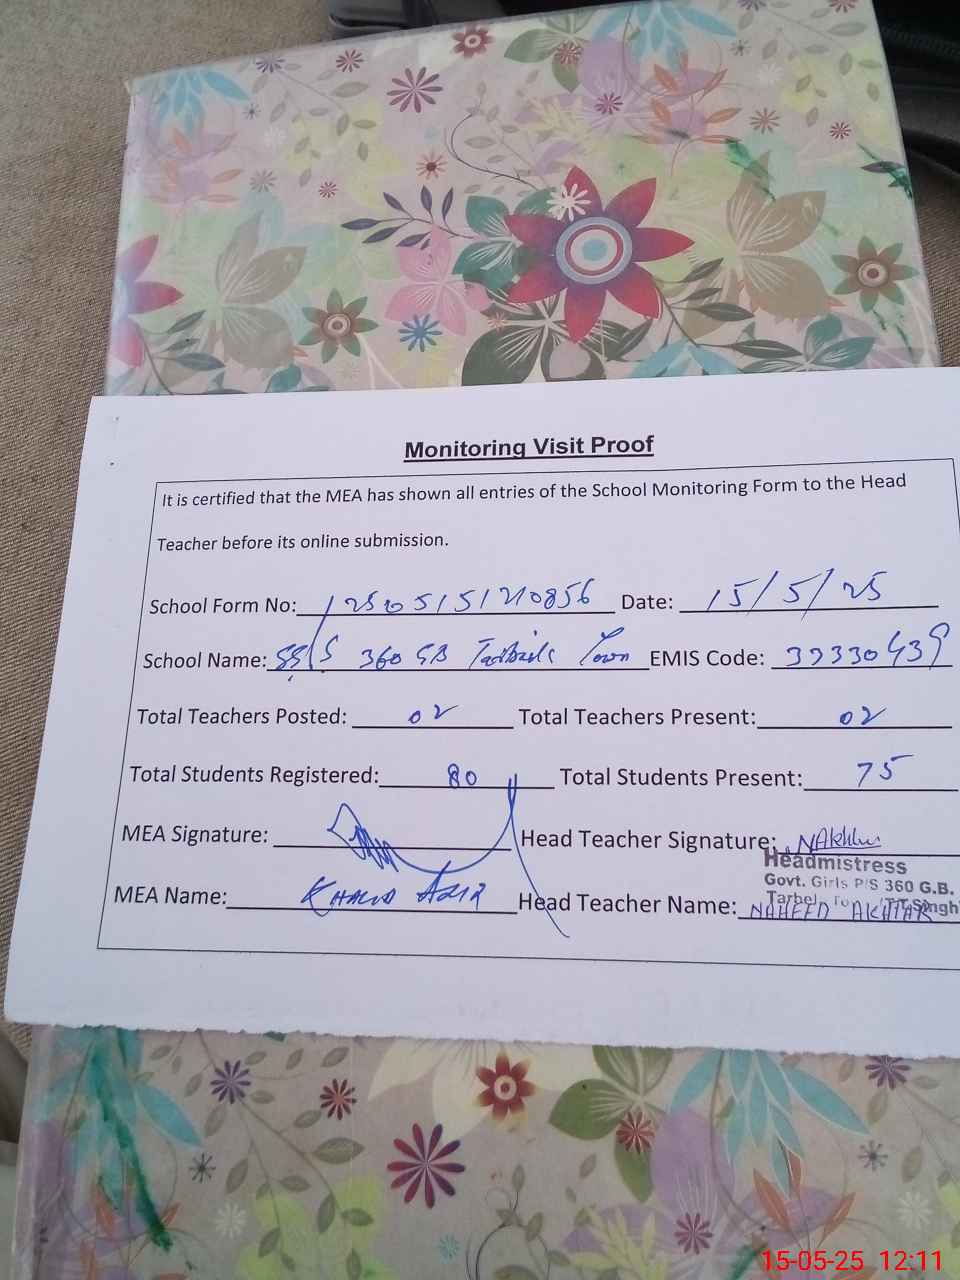 Monitoring Visit Proof
It is certified that the MEA has shown all entries of the School Monitoring Form to the Head
Teacher before its online submission.
School Form No: 12505151210856 Date: 15/5/25
School Name: 360 GB Town EMIS Code: 33330439
Total Teachers Posted: 02 Total Teachers Present: 02
Total Students Registered: 80 Total Students Present: 75
MEA Signature: Head Teacher Signature: NAkhtar
Headmistress
Govt. Girls P/S 360 G.B.
MEA Name: KHALID AZIZ Head Teacher Name: NAHEED AKHTAR
15-05-25 12:11